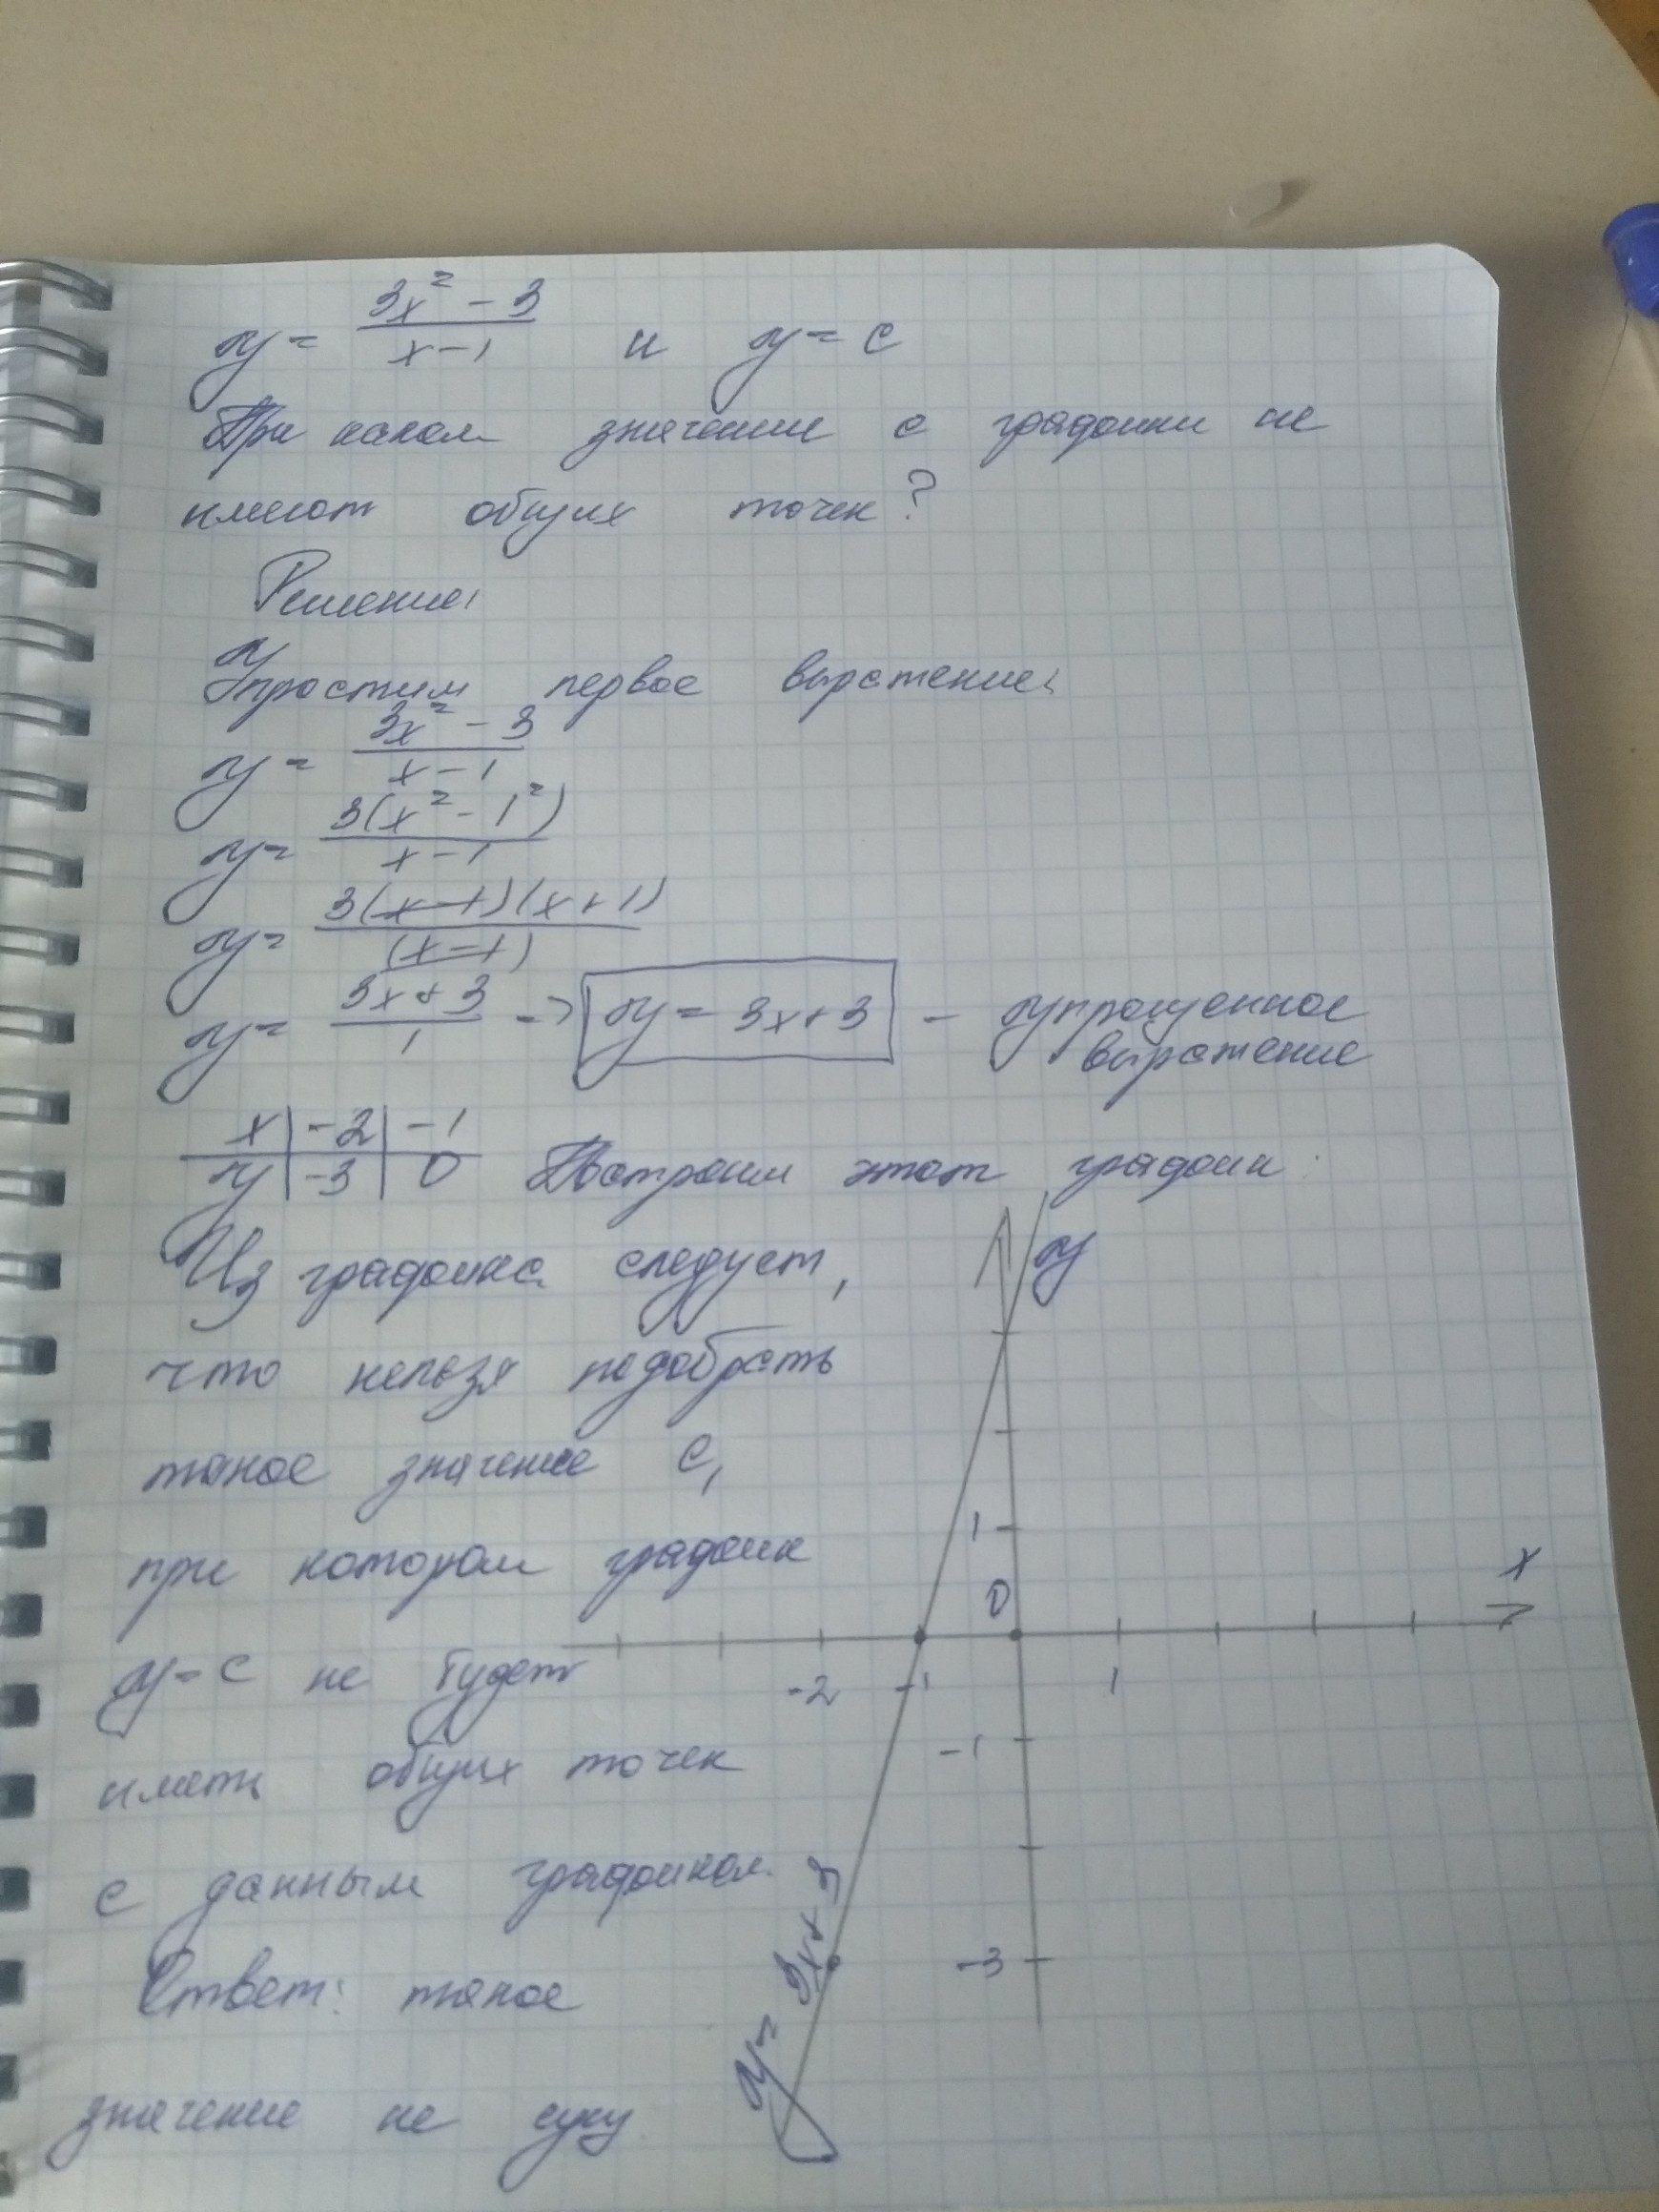 y = (3x² - 3)/(x - 1) и y = c
При каком значении c графики не
имеют общих точек?
Решение:
Упростим первое выражение:
y = (3x² - 3)/(x - 1)
y = (3(x² - 1²))/(x - 1)
y = (3(x - 1)(x + 1))/((x - 1))
y = (3x + 3)/1 -> y = 3x + 3 - упрощенное
выражение
x | -2 | -1
y | -3 | 0 Построим этот график:
Из графика следует,
y
что нельзя подобрать
такое значение c,
при котором график
1
0
x
y = c не будет
-2 -1 1
-1
иметь общих точек
с данным графиком.
y = 3x + 3
-3
Ответ: такое
значение не